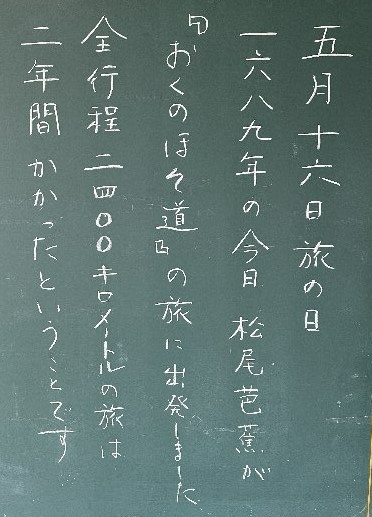 五月十六日 旅の日
一六八九年の今日 松尾芭蕉が
『おくのほそ道』の旅に出発しました
全行程二四〇〇キロメートルの旅は
二年間かかったということです